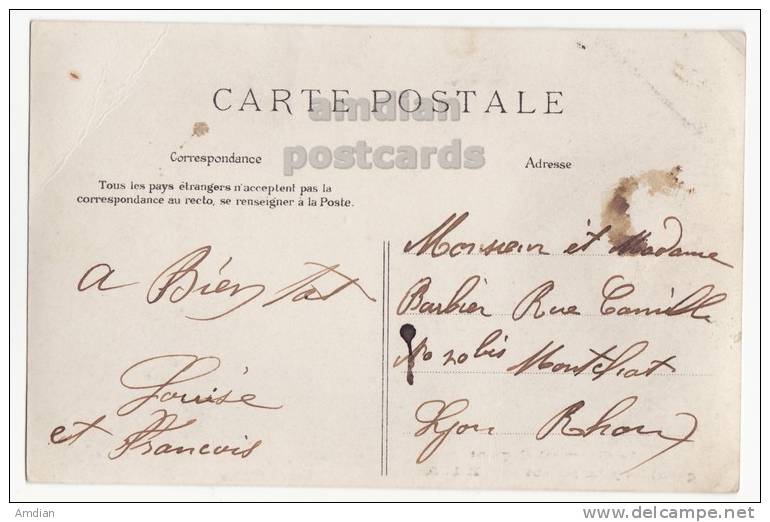 CARTE POSTALE
amdian
postcards
Correspondance
Adresse
Tous les pays étrangers n'acceptent pas la
correspondance au recto, se renseigner à la Poste.
a Bien Tat
Louise
et Francois
Monsieur et Madame
Barbier Rue Camille
No 20 bis Montchat
Lyon Rhone
Amdian
www.delcampe.net